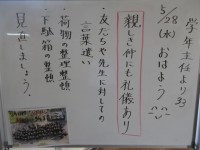 学年主任より 33
5/28(水)おはよう
親しき仲にも礼儀あり
・友だちや先生に対しての
言葉遣い
・荷物の整理整頓
・下駄箱の整頓
見直しましょう。